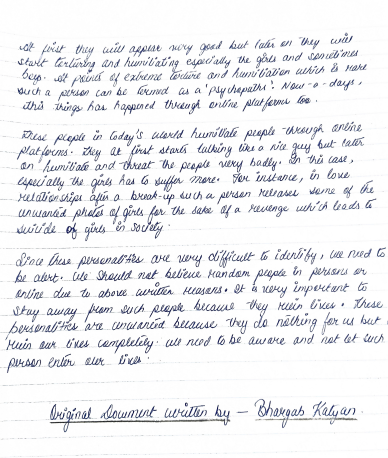 At first they will appear very good but later on they will
start torturing and humiliating especially the girls and sometimes
boys. At points of extreme torture and humiliation which is rare
such a person can be termed as a 'psychopaths'. Now-a-days,
this things has happened through online platforms too.
These people in today's world humiliate people through online
platforms. They at first starts talking like a nice guy but later
on humiliate and threat the people very badly. In this case,
especially the girls has to suffer more. For instance, in love
relationships after a break-up such a person releases some of the
unwanted photos of girls for the sake of a revenge which leads to
suicide of girls in society.
Since these personalities are very difficult to identify, we need to
be alert. We should not believe random people in persons or
online due to above written reasons. It is very important to
stay away from such people because they ruin lives. These
personalities are unwanted because they do nothing for us but
ruin our lives completely. We need to be aware and not let such
person enter our lives.
Original Document written by - Bhargab Katyan.